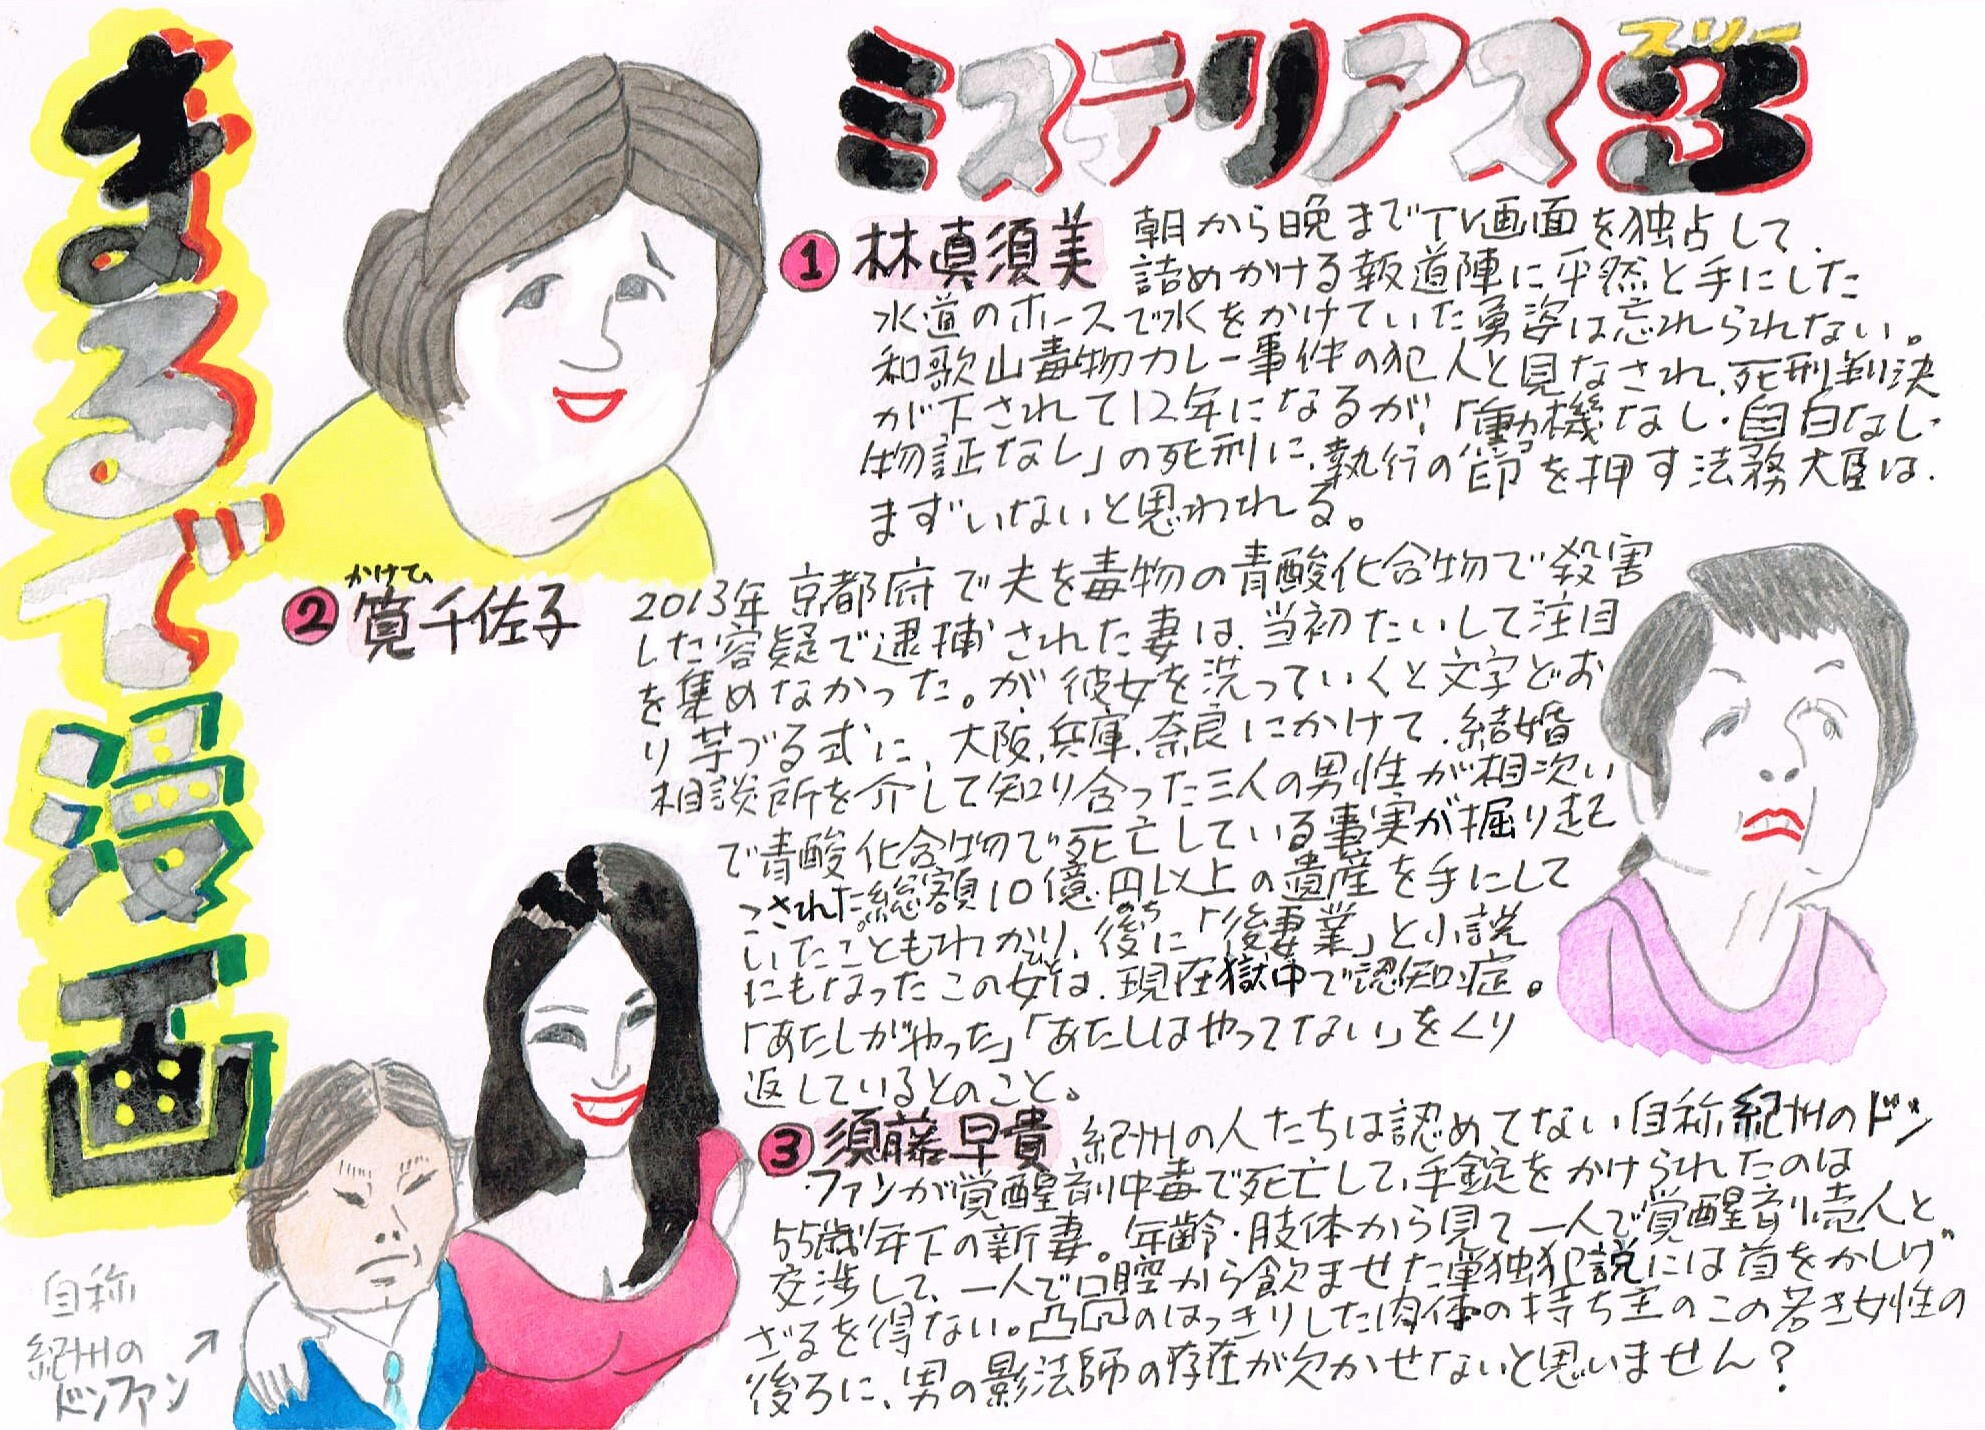 まるで漫画
ミステリアス3
スリー
1 林眞須美
朝から晩までTV画面を独占して、
詰めかける報道陣に平然と手にした
水道のホースで水をかけていた勇姿は忘れられない。
和歌山毒物カレー事件の犯人と見なされ、死刑判決
が下されて12年になるが、「動機なし・自白なし・
物証なし」の死刑に、執行の印を押す法務大臣は、
まずいないと思われる。
かけひ
2 筧千佐子
2013年京都府で夫を毒物の青酸化合物で殺害
した容疑で逮捕された妻は、当初たいして注目
を集めなかった。が彼女を洗っていくと文字どお
り芋づる式に、大阪、兵庫、奈良にかけて、結婚
相談所を介して知り合った三人の男性が相次い
で青酸化合物で死亡している事実が掘り起
こされた。総額10億円以上の遺産を手にして
いたこともわかり、後に「後妻業」と小説
のち
にもなったこの女は、現在獄中で認知症。
ひと
「あたしがやった」「あたしはやってない」をくり
返しているとのこと。
3 須藤早貴
紀州の人たちは認めてない自称紀州のドン
・ファンが覚醒剤中毒で死亡して、手錠をかけられたのは
55歳年下の新妻。年齢・肢体から見て一人で覚醒剤売人と
交渉して、一人で口腔から飲ませた単独犯説には首をかしげ
ざるを得ない。凸凹のはっきりした肉体の持ち主のこの若き女性の
後ろに、男の影法師の存在が欠かせないと思いません？
自称
紀州の
ドンファン